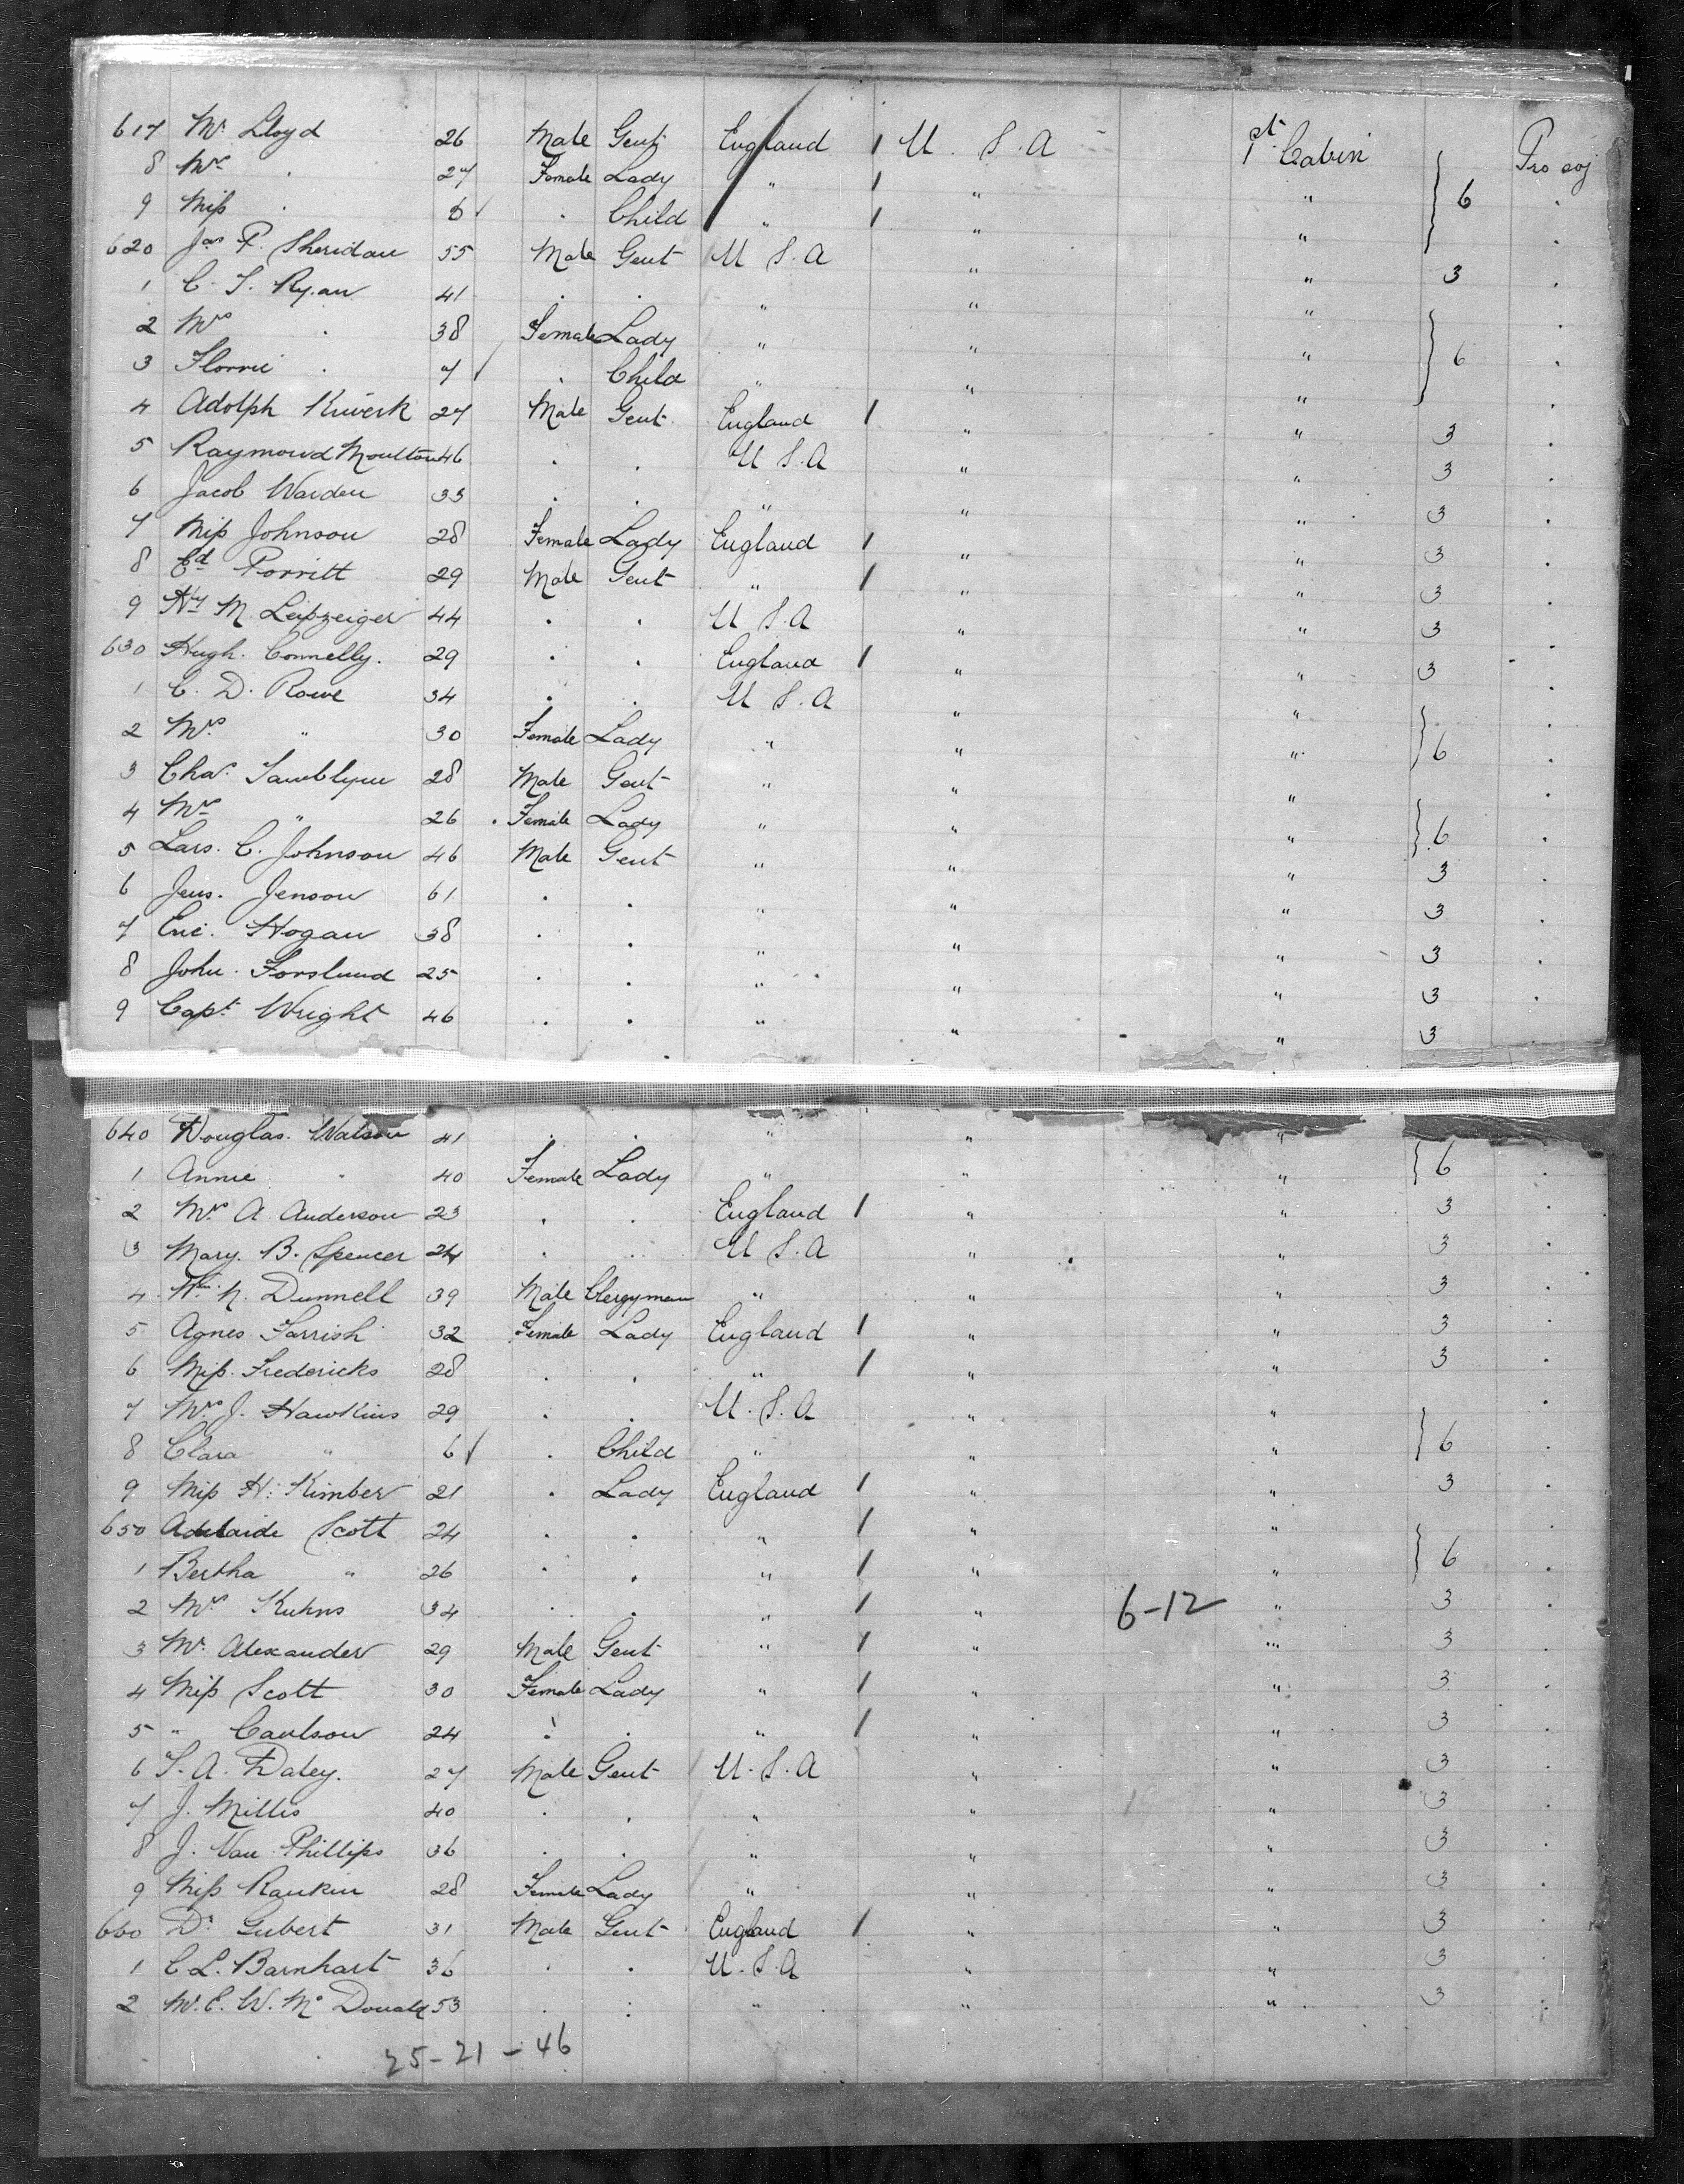 617 Mr. Lloyd 26 Male Gent England / U. S. A 1st Cabin Pro voj
8 Mrs . 27 Female Lady " / " " } 6 .
9 Miss . 6 / . Child " / " " .
620 Jas P. Sheridan 55 Male Gent U S. A " " 3 .
1 C. S. Ryan 41 . . " " " .
2 Mrs . 38 Female Lady " " " } 6 .
3 Florrie . 7 / . Child " " " .
4 Adolph 27 Male Gent England / " " 3 .
5 Raymond Moulton 46 . . U S. A " " 3 .
6 Jacob Warden 33 . . " " " 3 .
7 Miss Johnson 28 Female Lady England / " " 3 .
8 Ed Porritt 29 Male Gent " / " " 3 .
9 Hy M. Leipzeiger 44 . . U S. A " " 3 .
630 Hugh. Connelly. 29 . . England / " " 3 .
1 C. D. Rowe 34 . . U S. A " " .
2 Mrs " 30 Female Lady " " " } 6 .
3 Chas. Tamblyn 28 Male Gent " " " .
4 Mrs " 26 . Female Lady " " " } 6 .
5 Lars. C. Johnson 46 Male Gent " " " 3 .
6 Jens. Jenson 61 . . " " " 3 .
7 Eric. Hogan 38 . . " " " 3 .
8 John. Forslund 25 . . " " " 3 .
9 Capt. Wright 46 . . " " " 3
640 Douglas. Watson 41 . . " " "
1 Annie " 40 Female Lady " " " } 6 .
2 Mrs A. Anderson 23 . . England / " " 3 .
3 Mary. B. Spencer 24 . . U S. A " " 3 .
4 Wm N. Dunnell 39 Male Clergyman " " " 3 .
5 Agnes Farrish 32 Female Lady England / " " 3 .
6 Miss. Fredericks 28 . . " / " " 3 .
7 Mrs J. Hawkins 29 . . U. S. A " " .
8 Clara " 6 / . Child " " " } 6 .
9 Miss H. Kimber 21 . Lady England / " " 3 .
650 Adelaide Scott 24 . . " / " " .
1 Bertha " 26 . . " / " " } 6 .
2 Mrs Kuhns 34 . . " / " 6-12 " 3 .
3 Mr. Alexander 29 Male Gent " / " " 3 .
4 Miss Scott 30 Female Lady " / " " 3 .
5 " Caulson 24 . . " / " " 3 .
6 S. A. Daley. 27 Male Gent U. S. A " " 3 .
7 J. Millis 40 . . " " " 3 .
8 J. Van Phillips 36 . . " " " 3 .
9 Miss Rankin 28 Female Lady " " " 3 .
660 Dr. Gubert 31 Male Gent England / " " 3 .
1 C. L. Barnhart 36 . . U. S. A " " 3 .
2 W. E. W. Mc Donald 53 . . " " " 3 .
25-21-46